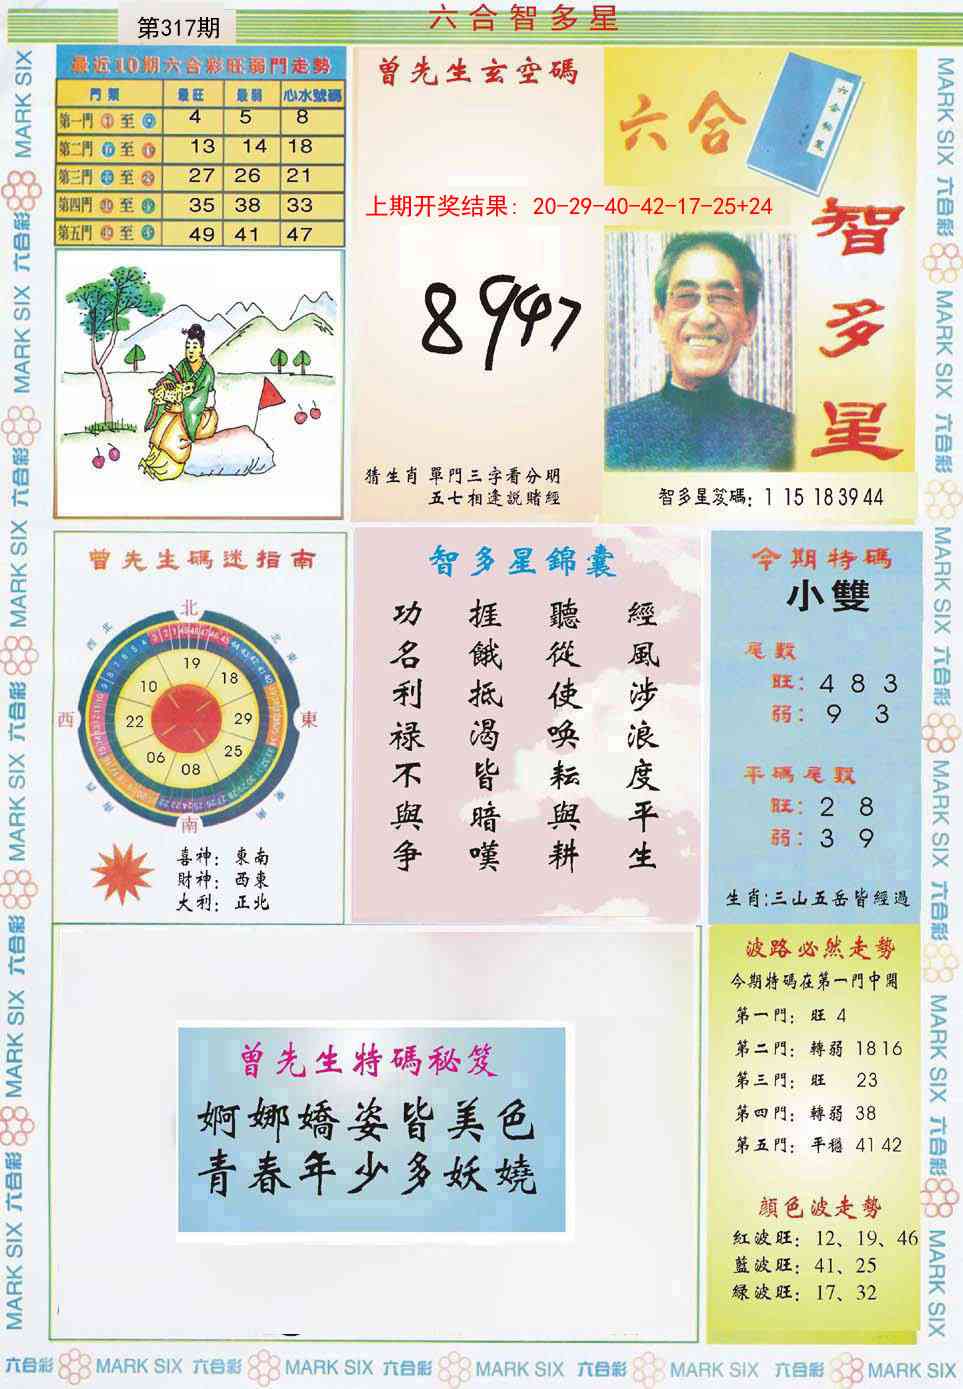 六合智多星
第317期
最近10期六合彩旺弱門走勢
門類 最旺 最弱 心水號碼
第一門 至 4 5 8
第二門 至 13 14 18
第三門 至 27 26 21
第四門 至 35 38 33
第五門 至 49 41 47
曾先生玄空碼
上期开奖结果: 20-29-40-42-17-25+24
8947
猜生肖 單門三字看分明
五七相逢説賭經
六合
智多星
智多星笈碼: 1 15 18 39 44
曾先生碼迷指南
北
東
南
西
19
18
29
25
08
06
22
10
喜神: 東南
財神: 西東
大利: 正北
智多星錦囊
經風涉浪度平生
聽從使喚耘與耕
捱餓抵渴皆暗嘆
功名利禄不與争
今期特碼
小雙
尾數
旺: 4 8 3
弱: 9 3
平碼尾數
旺: 2 8
弱: 3 9
生肖:三山五岳皆經過
曾先生特碼秘笈
婀娜嬌姿皆美色
青春年少多妖嬈
波路必然走勢
今期特碼在第一門中開
第一門: 旺 4
第二門: 轉弱 18 16
第三門: 旺 23
第四門: 轉弱 38
第五門: 平穩 41 42
顔色波走勢
紅波旺: 12、19、46
藍波旺: 41、25
綠波旺: 17、32
六合彩 MARK SIX 六合彩 MARK SIX 六合彩 MARK SIX 六合彩 MARK SIX 六合彩 MARK SIX